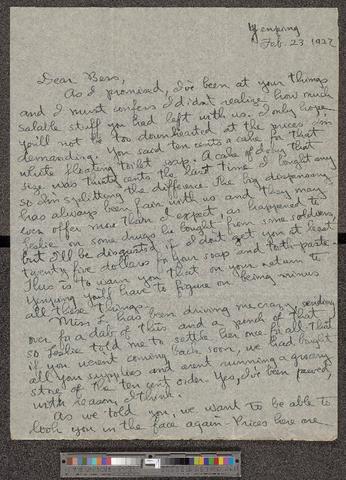 Yenping
Feb. 23 1927
Dear Bess,
As I promised, I've been at your things
and I must confess I didn't realize how much
salable stuff you had left with us. I only hope
you'll not be too downhearted at the prices I'm
demanding. You said ten cents a cake for that
white floating toilet soap. A cake of doby that
size was thirty cents the last time I bought any
so I'm splitting the difference. The big dispensary
has always been fair with us and they may
even offer more than I expect, as happened to
Leslie on some drugs he bought from some soldiers,
but I'll be disgusted if I don't get you at least
twenty five dollars for your soap and tooth-paste.
This is to warn you that on your return to
Yenping you'll have to figure on being minus
all these things.
Miss L. has been driving me crazy, sending
over for a dab of this and a pinch of that
so Leslie told me to settle her once for all that
if you weren't coming back soon, we had bought
all your supplies and aren't running a grocery
store of the ten cent order. Yes, I've been peeved,
with reason, I think.
As we told you, we want to be able to
look you in the face again. Prices here are